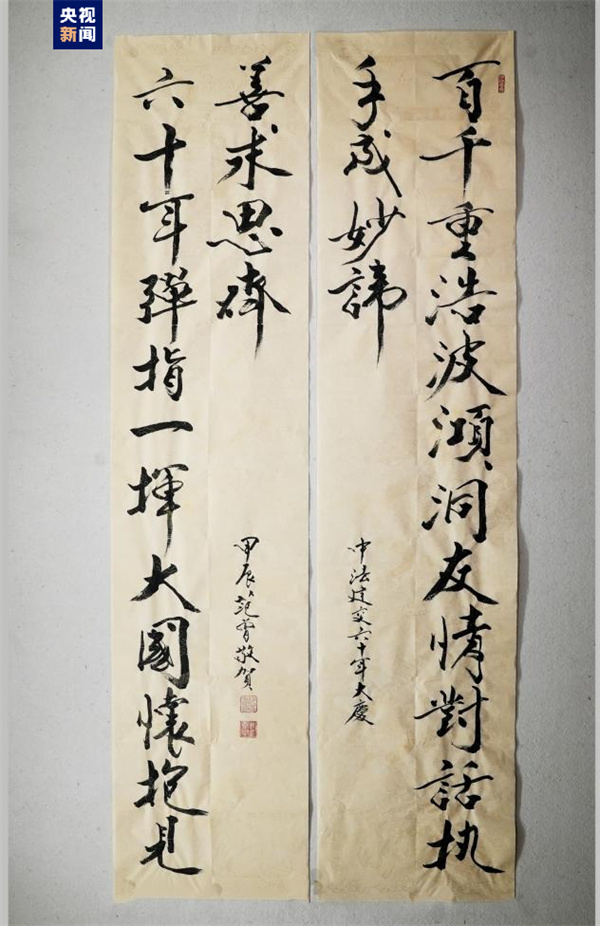 央视
新闻
百千重浩波澒洞友情對話执
手成妙諦
中法建交六十年大慶
六十年彈指一揮大國懷抱見
善求思齊
甲辰范曾敬贺